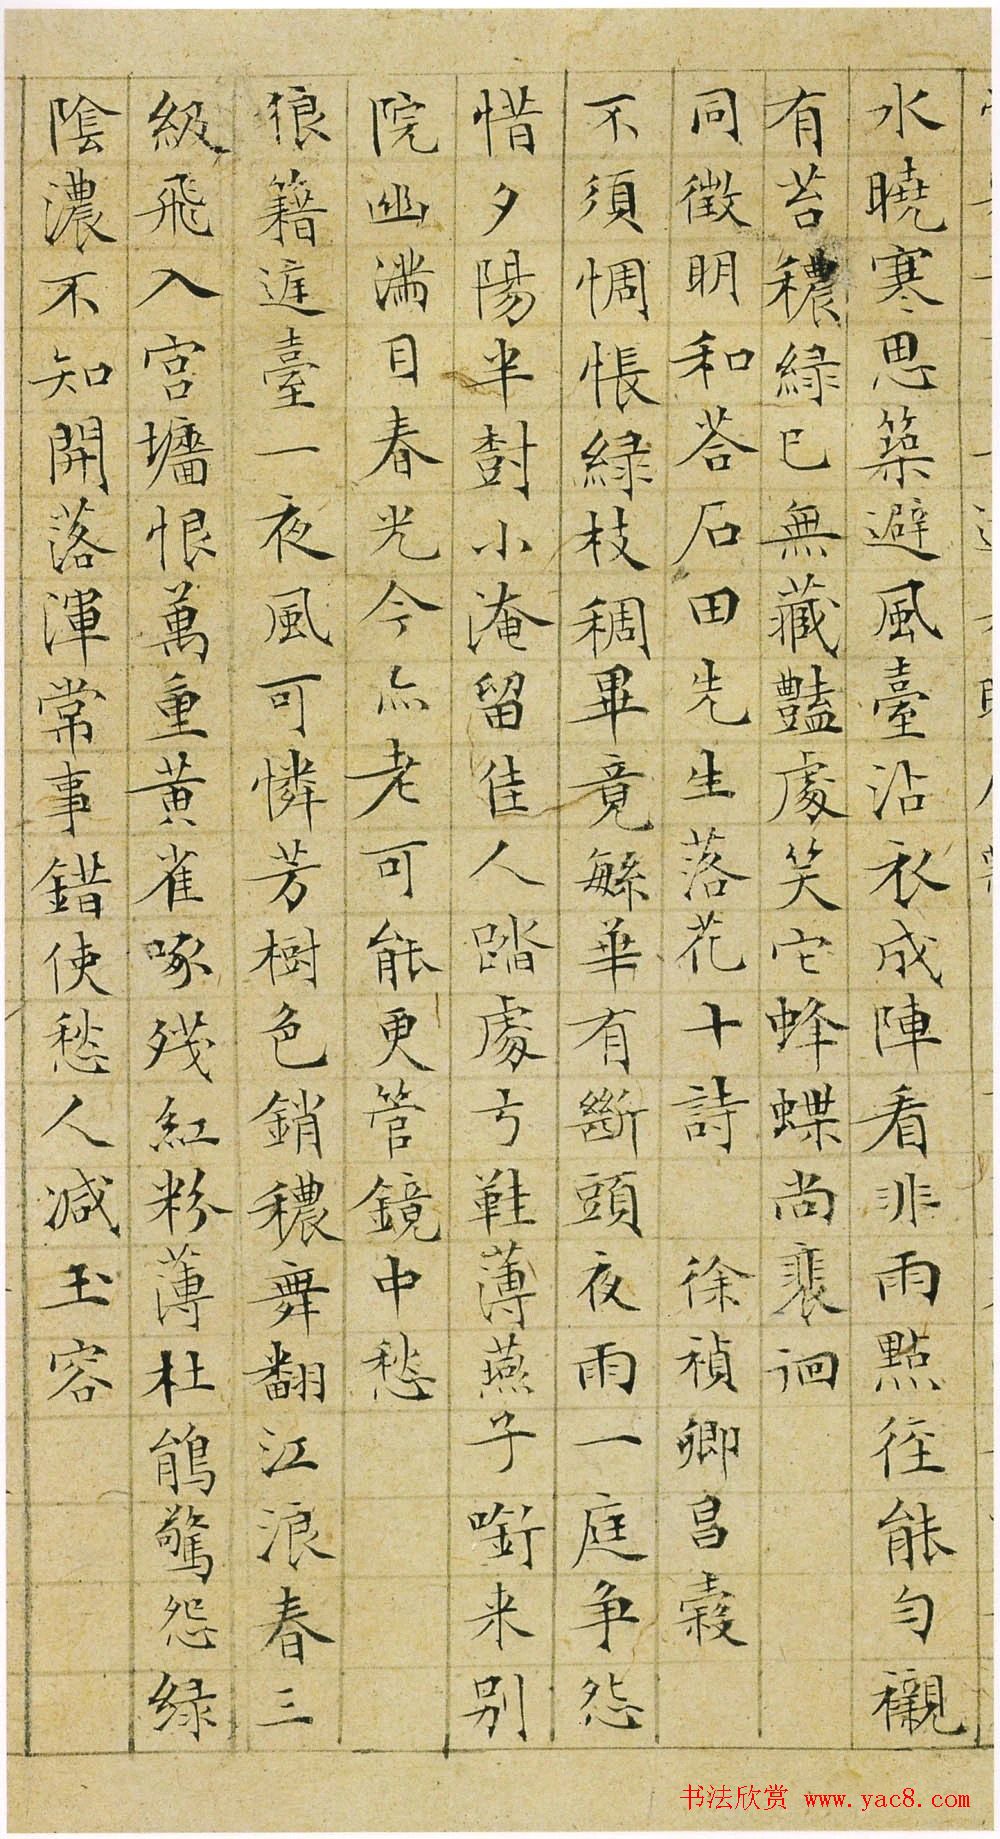 水曉寒思築避風臺沾衣成陣看非雨點徑能勻襯
有苔穠綠已無藏豔處笑它蜂蝶尚裴徊
同徵明和荅石田先生落花十詩 徐禎卿昌穀
不須惆悵綠枝稠畢竟緐華有斷頭夜雨一庭爭怨
惜夕陽半樹小淹留佳人踏處弓鞋薄燕子銜来別
院幽滿目春光今亦老可能更管鏡中愁
狼籍庭臺一夜風可憐芳樹色銷穠舞翻江浪春三
級飛入宮墻恨萬重黃雀啄殘紅粉薄杜鵑驚怨綠
陰濃不知開落渾常事錯使愁人減玉容
书法欣赏 www.yac8.com